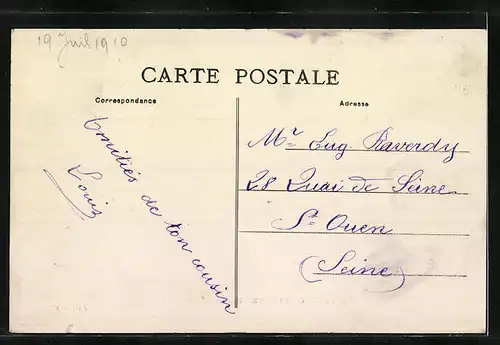 19 Juil 1910
CARTE POSTALE
Correspondance
Adresse
Amitiés de ton cousin
Louis
Mr Eug. Raverdy
28 Quai de Seine
St Ouen
(Seine)